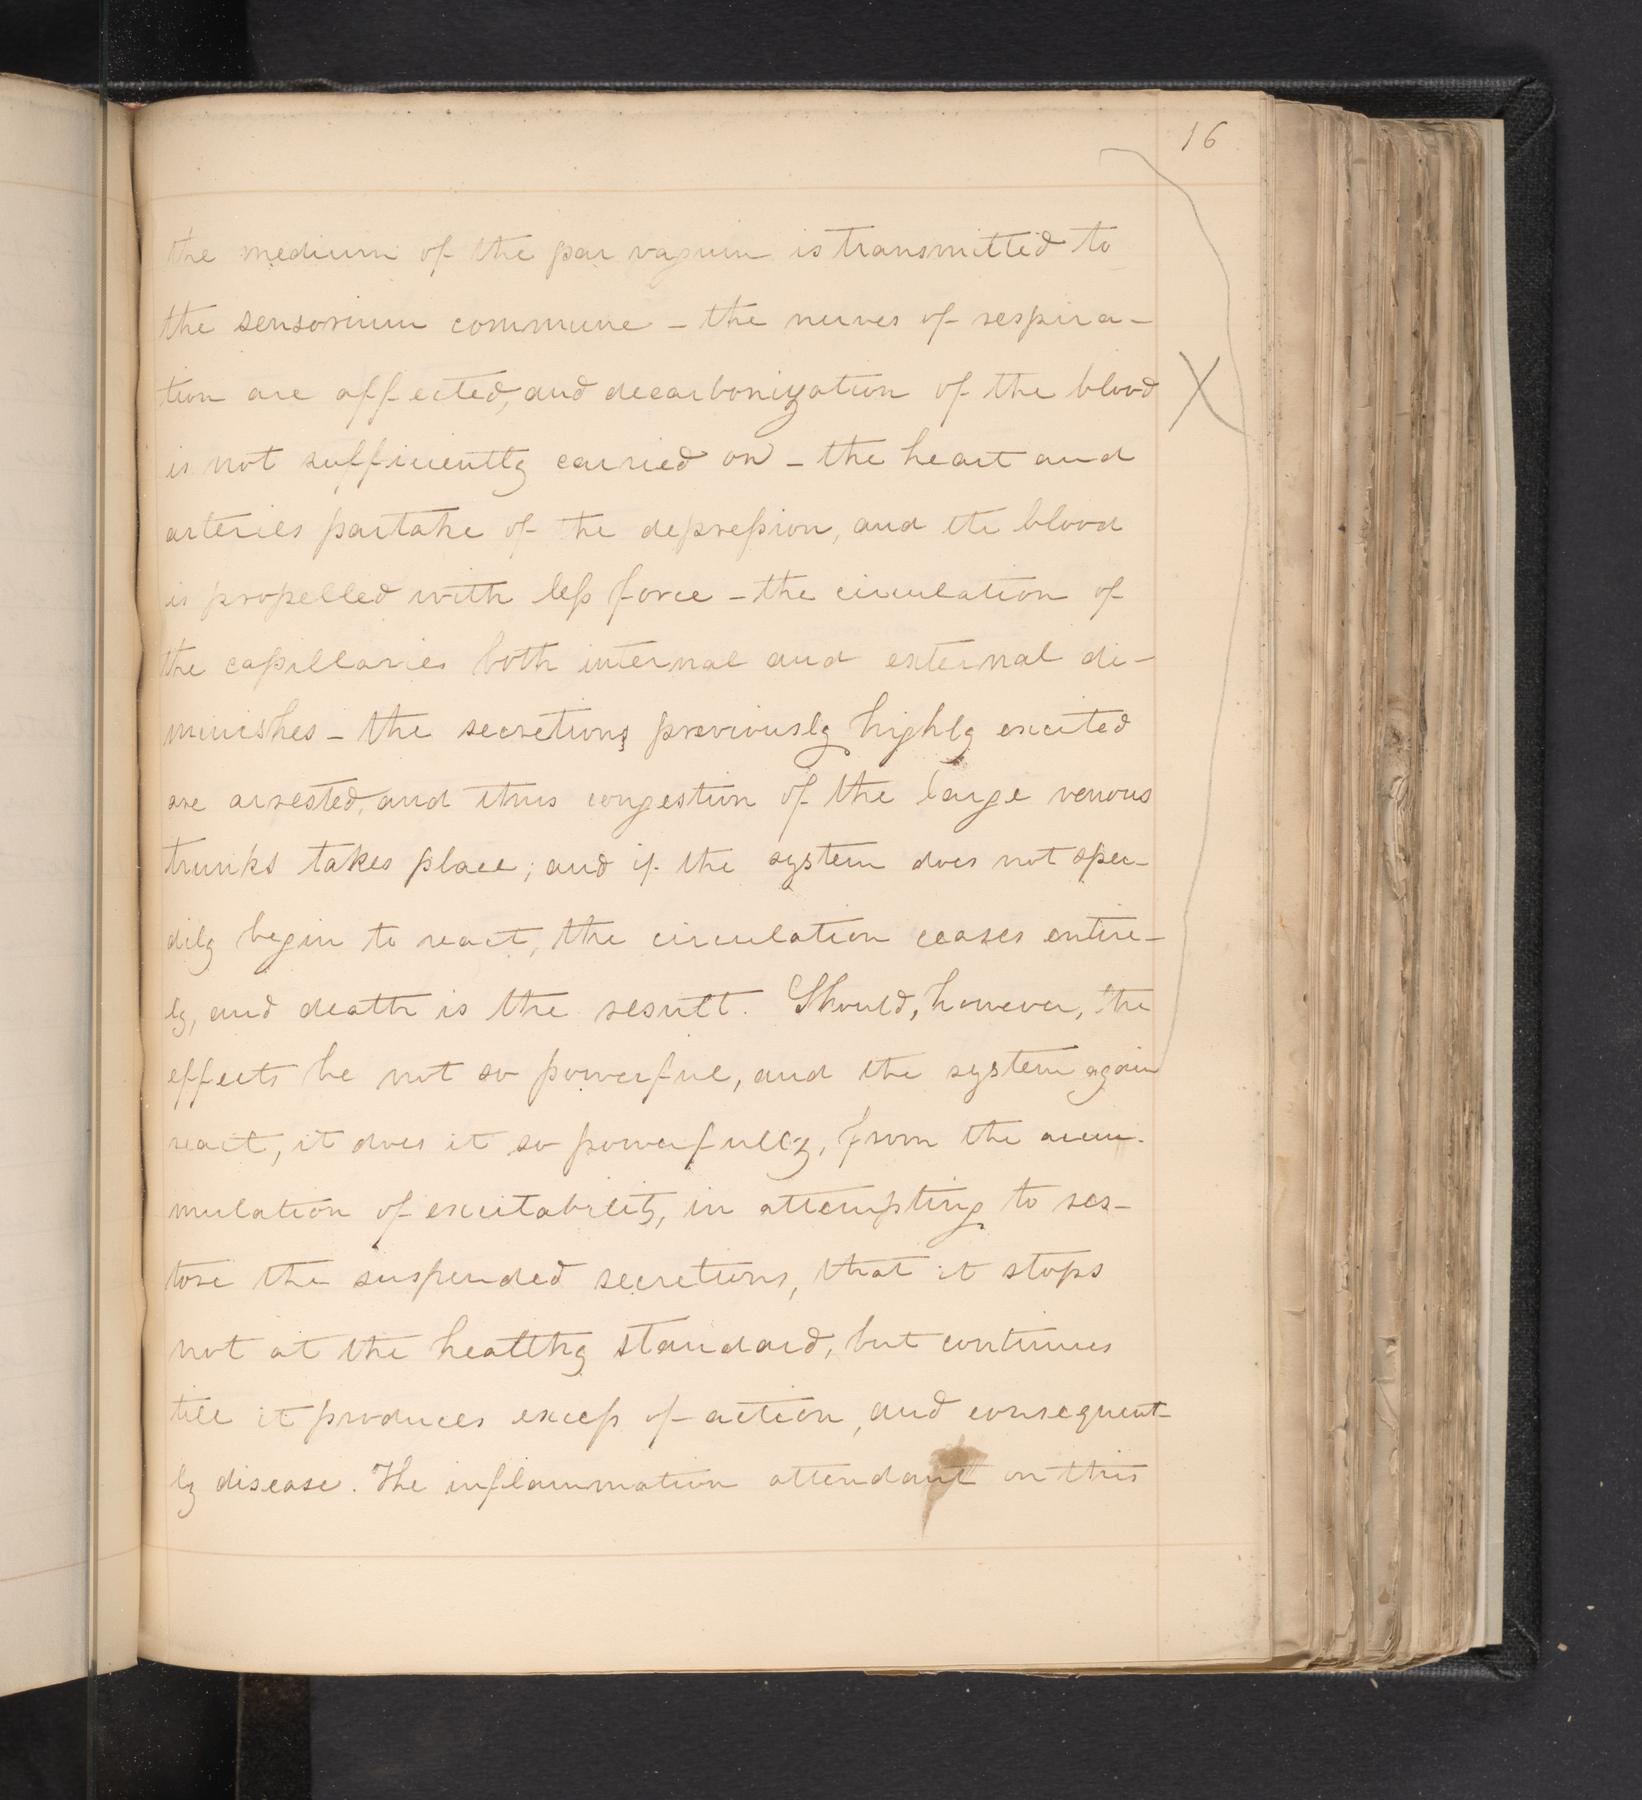 16
the medium of the par vagum is transmitted to
the sensorium commune – the nerves of respira-
tion are affected, and decarbonization of the blood
is not sufficiently carried on – the heart and
arteries partake of the depression, and the blood
is propelled with less force – the circulation of
the capillaries both internal and external di-
minishes – the secretions previously highly excited
are arrested, and thus congestion of the large venous
trunks takes place; and if the system does not spee-
dily begin to react, the circulation ceases entire-
ly, and death is the result. Should, however, the
effects be not so powerful, and the system again
react, it does it so powerfully, from the accu-
mulation of excitability, in attempting to res-
tore the suspended secretions, that it stops
not at the healthy standard, but continues
till it produces excess of action, and consequent-
ly disease. The inflammation attendant on this